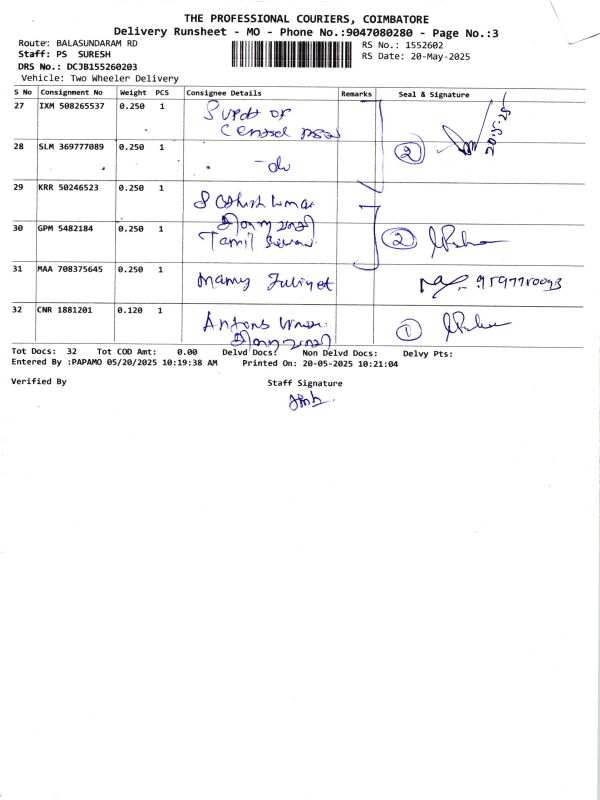 THE PROFESSIONAL COURIERS, COIMBATORE
Delivery Runsheet - MO - Phone No.:9047080280 - Page No.:3
Route: BALASUNDARAM RD
RS No.: 1552602
Staff: PS SURESH
RS Date: 20-May-2025
DRS No.: DCJB155260203
Vehicle: Two Wheeler Delivery
S No Consignment No Weight PCS Consignee Details Remarks Seal & Signature
27 IXM 508265537 0.250 1 Supdt of
Central
20.5.25
28 SLM 369777089 0.250 1 -do
2
29 KRR 50246523 0.250 1
30 GPM 5482184 0.250 1 Tamil
2
31 MAA 708375645 0.250 1 Mamy Juliyet
9597710093
32 CNR 1881201 0.120 1
1
Tot Docs: 32 Tot COD Amt: 0.00 Delvd Docs: Non Delvd Docs: Delvy Pts:
Entered By :PAPAMO 05/20/2025 10:19:38 AM Printed On: 20-05-2025 10:21:04
Verified By Staff Signature